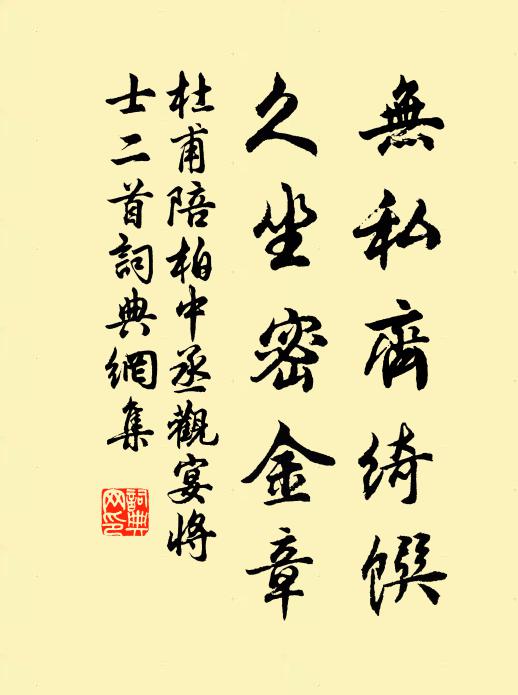 無私齊綺饌
久坐密金章
杜甫陪柏中丞觀宴將
士二首詞典網集
詞典
网印